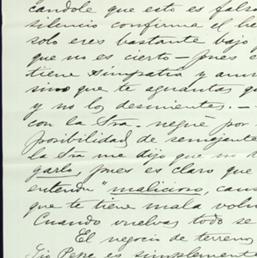 cándole que esto es falso
silencio confirma el he
solo eres bastante bajo
que no es cierto — pues e
tiene simpatía y am
sino que te aguantas q
y no los desmientes. —
con la Sra. negué por
posibilidad de semejant
la Sra me dijo que no
garlo, pues es claro que
entender "malicioso, cau
que te tiene mala volu
Cuando vuelvas todo se
El negocio de terreno
Tío Pepe es simplemente